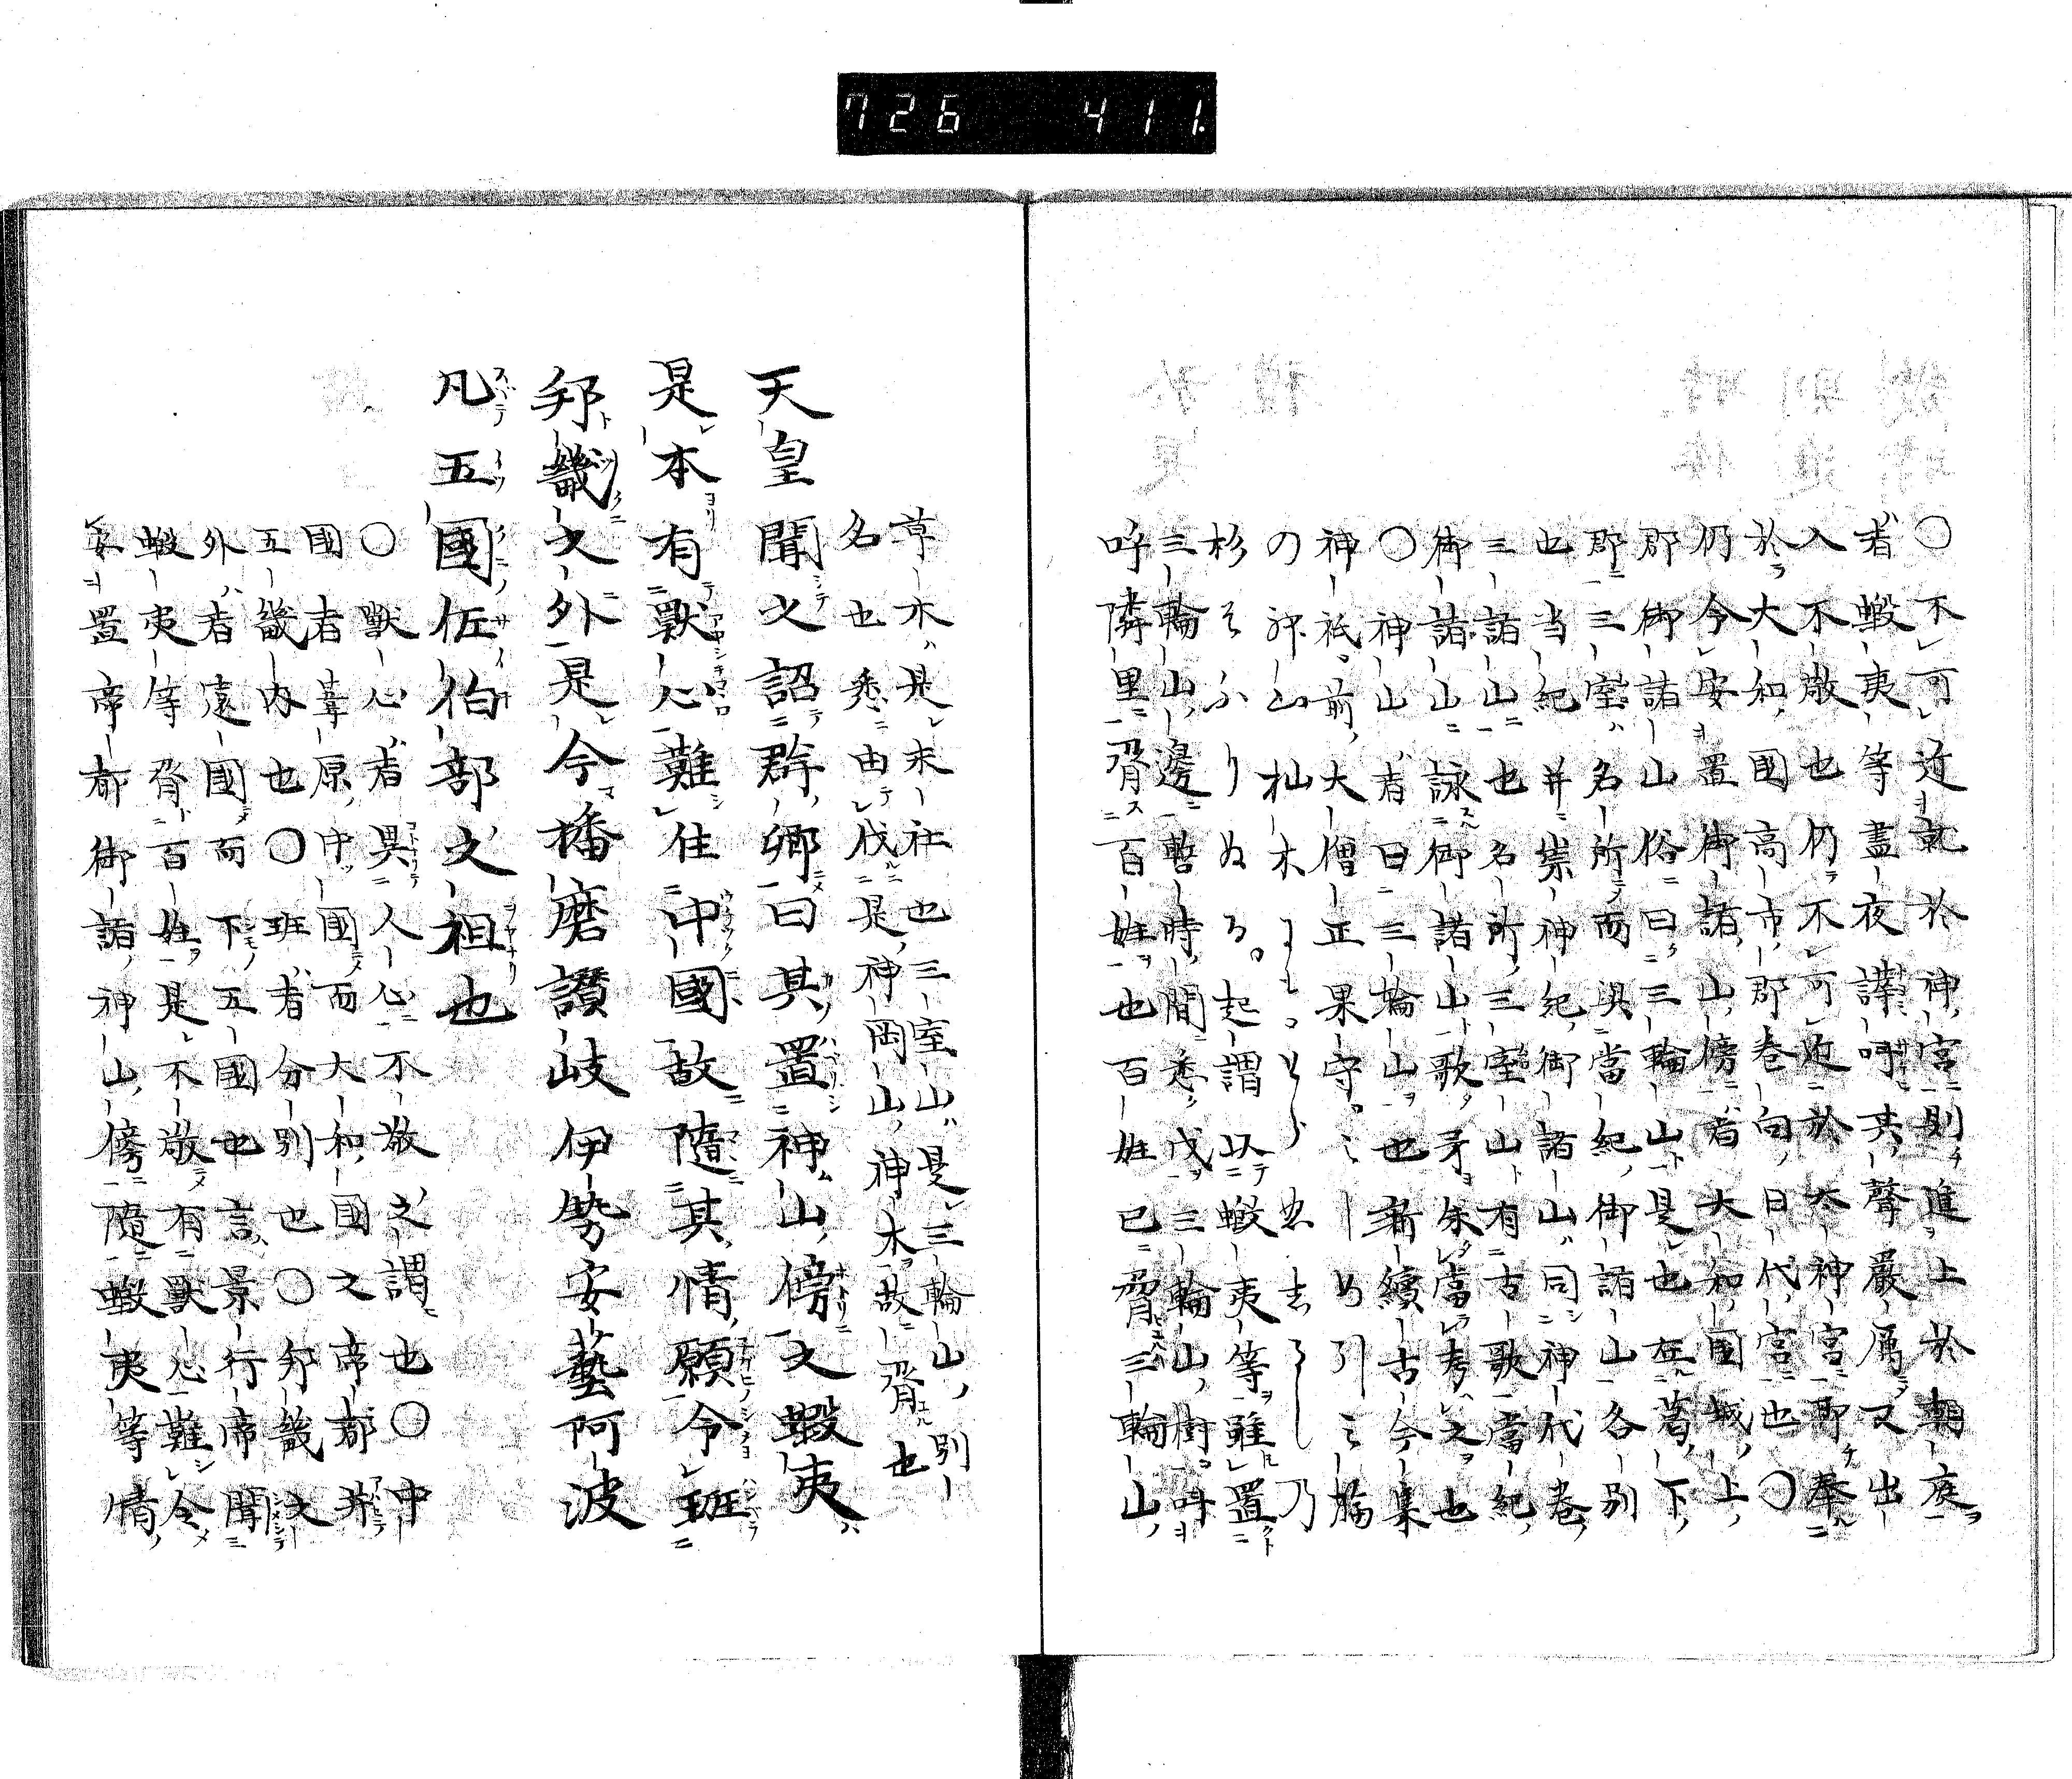 726 411
〇不可近就於神宮則進上於朝庭
者蝦夷等晝夜譁呌其聲嚴厲又出
入不敬也仍不可近於大神宮即奉
於大和國高市郡巻向日代宮也〇
仍令安置御諸山傍者大和國城上
郡御諸山俗曰三輪山是也在著下
郡三室名所而與當紀御諸山各別
也当紀并崇神紀御諸山同神代巻
三諸山也名所三室山有古歌當紀
御諸山詠御諸山歌矛朱當考之也
〇神山者曰三輪山也新續古今集
神祇前大僧正果守
の神山杣木
杉 起謂以蝦夷等雖置
三輪山邊暫時間悉伐三輪山樹呌
呼隣里脅百姓也百姓已脅三輪山
草木是末社也三室山是三輪山別
名也悉由伐是神岡山神木故脅也
天皇聞之詔群卿曰其置神山傍之蝦夷
是本有獸心難住中國故隨其情願令班
邦畿之外是今播磨讃岐伊勢安藝阿波
凡五國佐伯部之祖也
〇獸心者異人心不敬之謂也〇中
國者葦原中國而大和國之帝都并
五畿内也〇班者分別也〇邦畿之
外者遠國而下五國也言景行帝聞
蝦夷等脅百姓是不敬有獸心難令
安置帝都御諸神山傍隨蝦夷等情